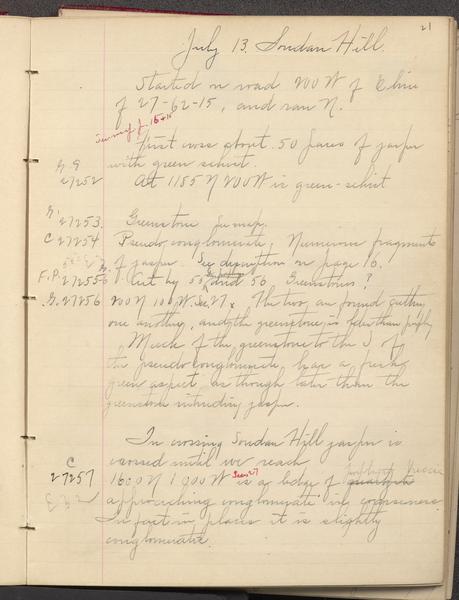 21
July 13. Soudan Hill.
Started on road 200 W of E line
of 27-62-15, and ran N.
See map p. 15 + 16
First cross about 50 paces of jasper
with green schist.
27252
At 1185 N 200 W is green-schist
27253. Greenstone See map.
C 27254 Pseudo conglomerate, Numerous fragments
of jasper. See description on page 16.
F.P. 27255 Cut by 55 and 56 Greenstones?
G. 27256 200 N 100 W. Sec. 27. The two are found cutting
one another, and the greenstone is older than
Much of the greenstone to the S of
the pseudo conglomerate has a fresh
green aspect as though later than the
greenstone intruding jasper.
In crossing Soudan Hill jasper is
crossed until we reach
C
27257 1600 N 1900 W Sec 27 is a ledge of
approaching conglomerate in coarseness
In fact in places it is slightly
conglomeratic.